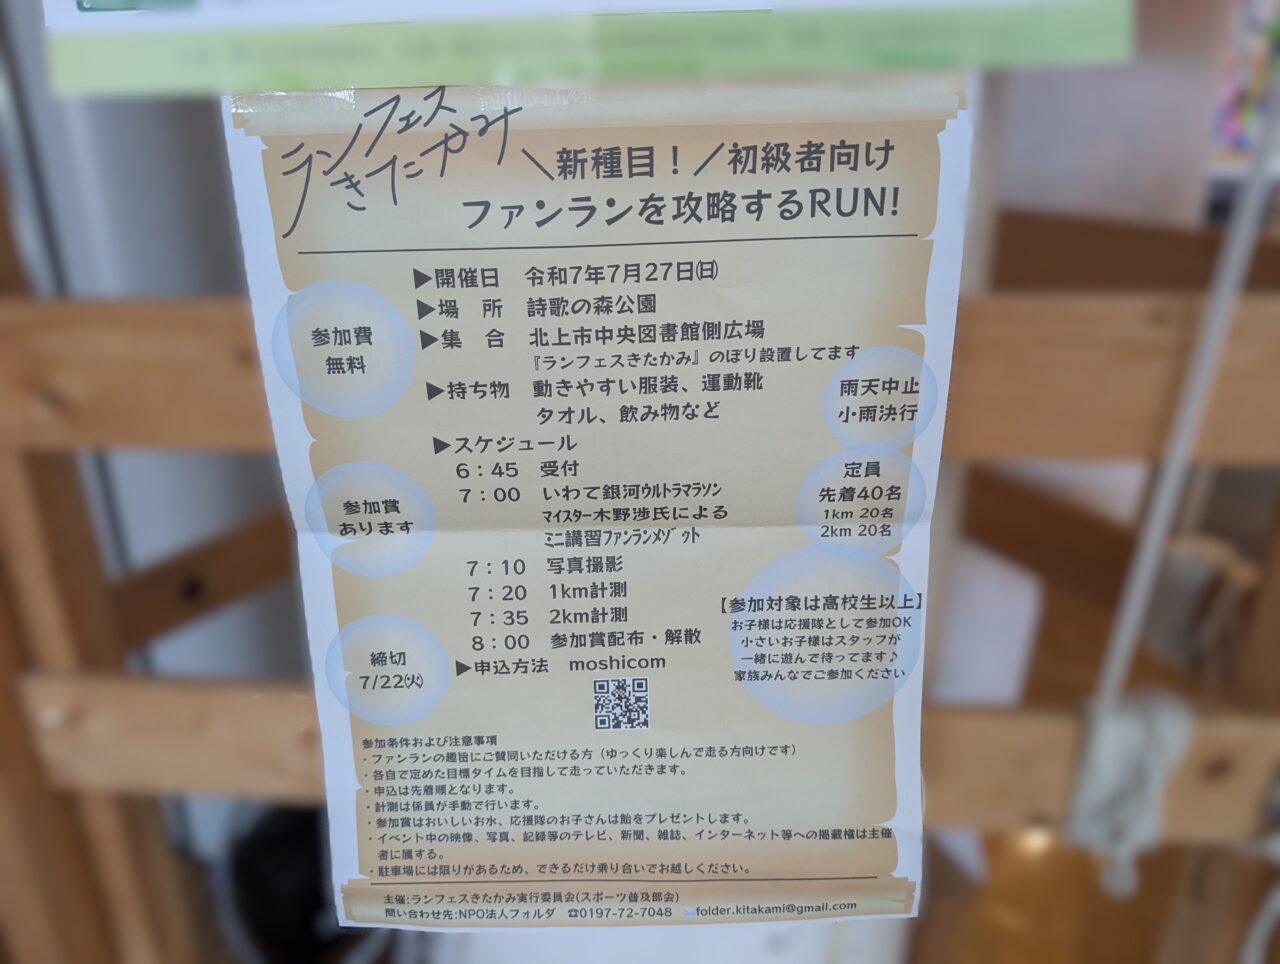 ランフェス
きたかみ
＼新種目！／初級者向け
ファンランを攻略するRUN!
▶開催日　令和7年7月27日㈰
▶場　所　詩歌の森公園
▶集　合　北上市中央図書館側広場
『ランフェスきたかみ』のぼり設置してます
▶持ち物　動きやすい服装、運動靴
タオル、飲み物など
▶スケジュール
6：45　受付
7：00　いわて銀河ｳﾙﾄﾗﾏﾗｿﾝ
ﾏｲｽﾀｰ木野渉氏による
ﾐﾆ講習ﾌｧﾝﾗﾝﾒｿﾞｯﾄ
7：10　写真撮影
7：20　1km計測
7：35　2km計測
8：00　参加賞配布・解散
▶申込方法　moshicom
参加費
無料
参加賞
あります
締切
7/22㈫
雨天中止
小雨決行
定員
先着40名
1km 20名
2km 20名
【参加対象は高校生以上】
お子様は応援隊として参加OK
小さいお子様はスタッフが
一緒に遊んで待ってます♪
家族みんなでご参加ください
参加条件および注意事項
・ファンランの趣旨にご賛同いただける方（ゆっくり楽しんで走る方向けです）
・各自で定めた目標タイムを目指して走っていただきます。
・申込は先着順となります。
・計測は係員が手動で行います。
・参加賞はおいしいお水、応援隊のお子さんは飴をプレゼントします。
・イベント中の映像、写真、記録等のテレビ、新聞、雑誌、インターネット等への掲載権は主催
者に属する。
・駐車場には限りがあるため、できるだけ乗り合いでお越しください。
主催:ランフェスきたかみ実行委員会(スポーツ普及部会)
問い合わせ先:NPO法人フォルダ　☎0197-72-7048　✉folder.kitakami@gmail.com